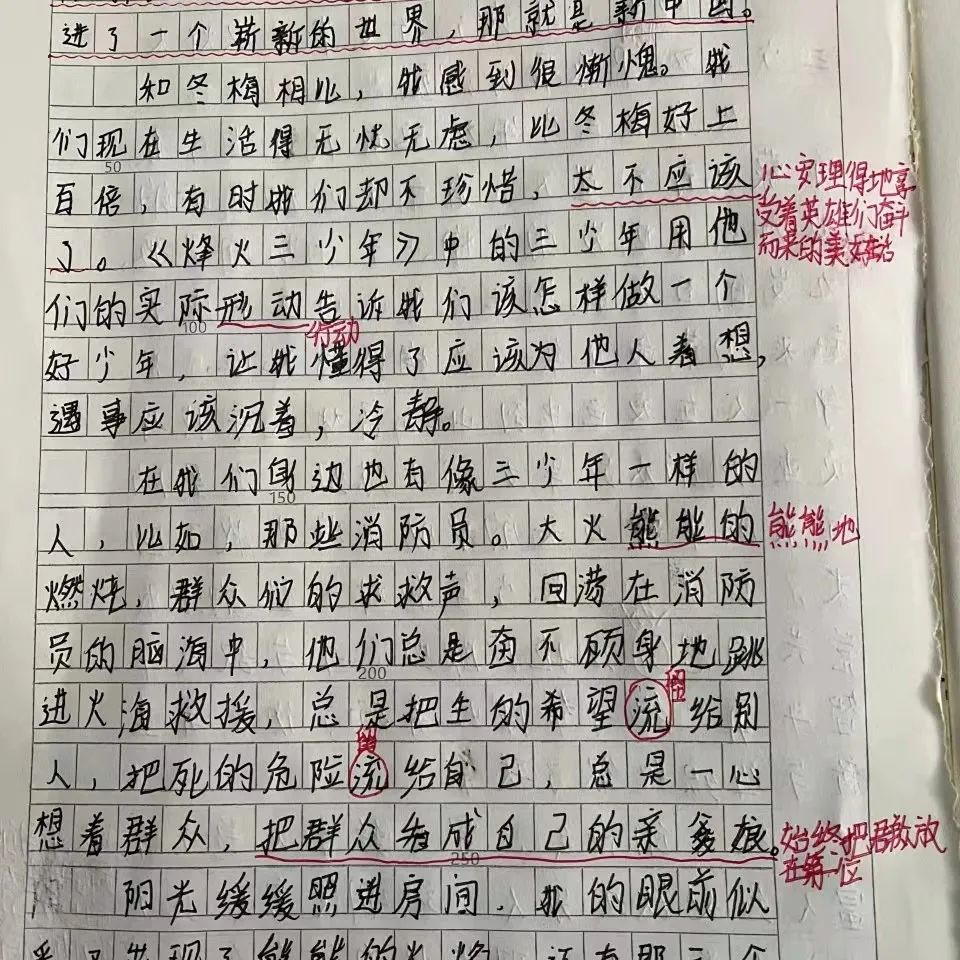 进了一个崭新的世界，那就是新中国。
和冬梅相比，我感到很惭愧。我
们现在生活得无忧无虑，比冬梅好上
50
百倍，有时我们却不珍惜，太不应该
心安理得地享
受着英雄们奋斗
而来的美好生活
了。《烽火三少年》中的三少年用他
们的实际形动告诉我们该怎样做一个
100
行动
好少年，让我懂得了应该为他人着想，
遇事应该沉着，冷静。
在我们身边也有像三少年一样的
150
人，比如，那些消防员。大火熊能的
熊熊地
燃炖，群众们的求救声，回荡在消防
员的脑海中，他们总是奋不顾身地跳
200
进火海救援，总是把生的希望流给别
留
人，把死的危险流给自己，总是一心
留
想着群众，把群众当成自己的亲爹娘。
250
始终把群众放
在第一位
阳光缓缓照进房间，我的眼前似